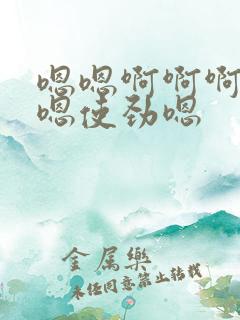 嗯嗯啊啊啊
嗯使劲嗯
金属乐
未经同意禁止转载